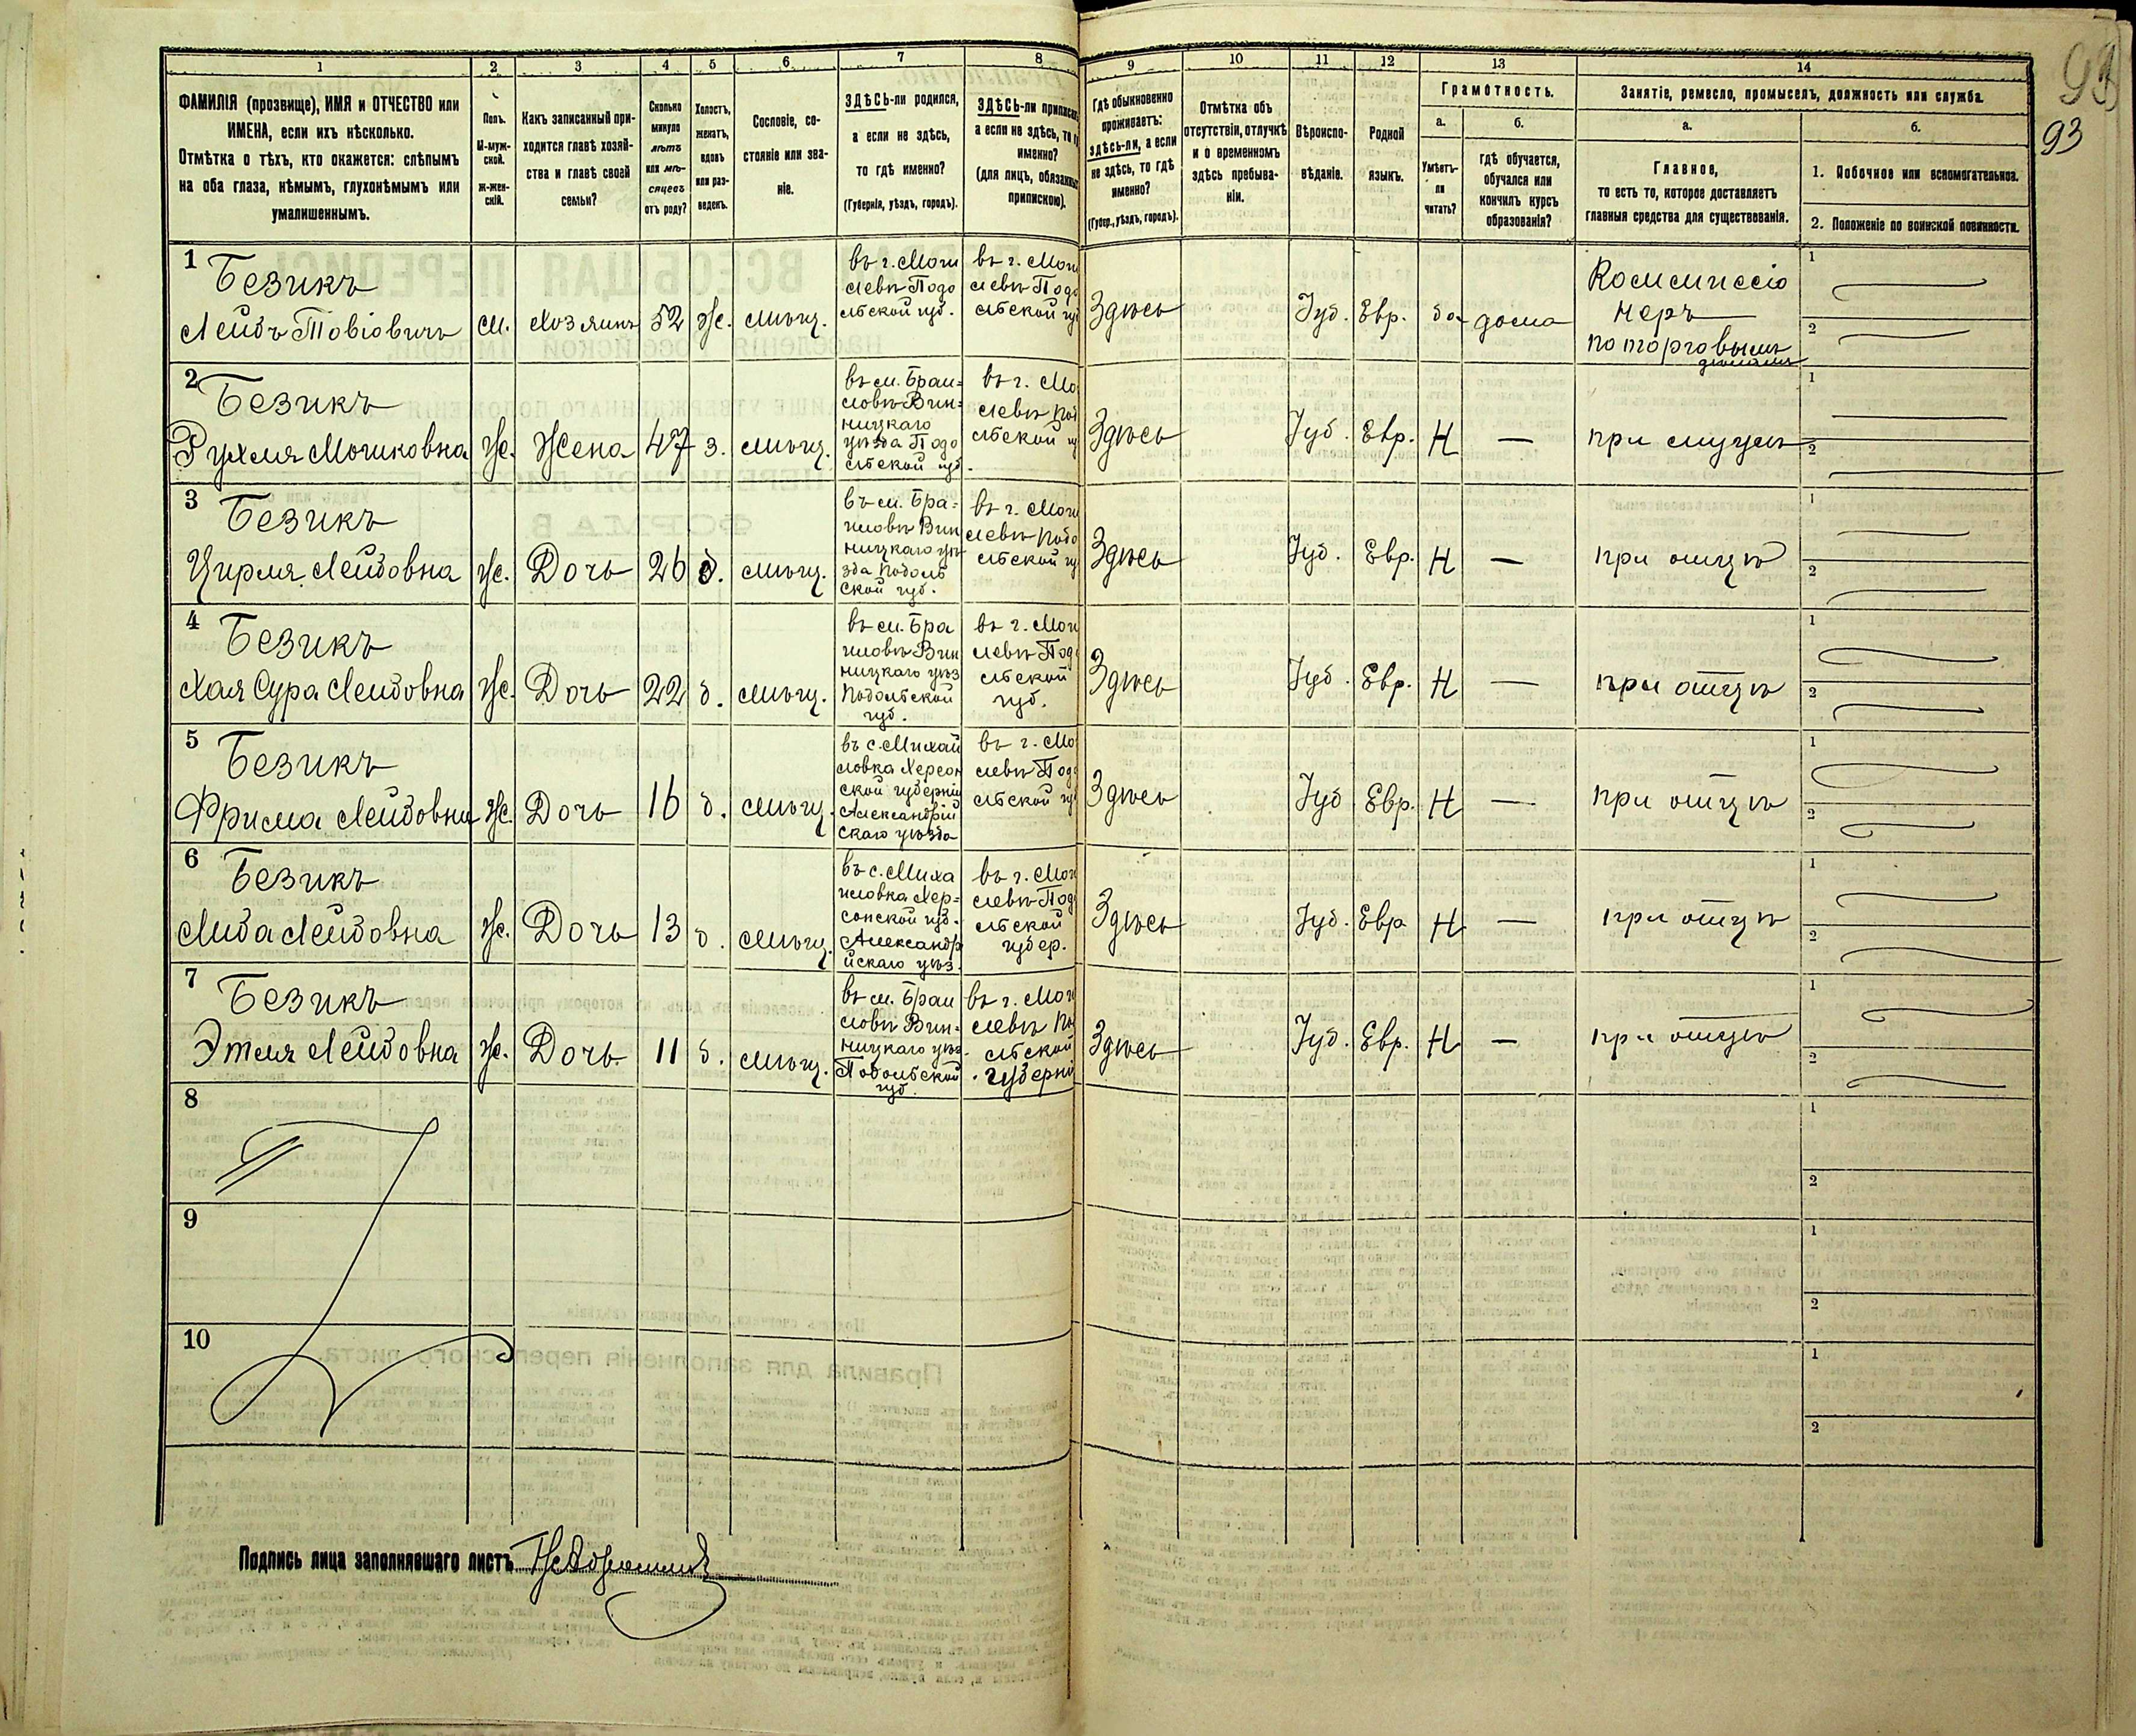 93
93
1 2 3 4 5 6 7 8 9 10 11 12 13 14
ФАМИЛІЯ (прозвище), ИМЯ и ОТЧЕСТВО или
ИМЕНА, если ихъ нѣсколько.
Отмѣтка о тѣхъ, кто окажется: слѣпымъ
на оба глаза, нѣмымъ, глухонѣмымъ или
умалишеннымъ.
Полъ.
М-муж-
ской.
Ж-жен-
скій.
Какъ записанный при-
ходится главѣ хозяй-
ства и главѣ своей
семьи?
Сколько
минуло
лѣтъ
или мѣ-
сяцевъ
отъ роду?
Холостъ,
женатъ,
вдовъ
или раз-
веденъ.
Сословіе, со-
стояніе или зва-
ніе.
ЗДѢСЬ-ли родился,
а если не здѣсь,
то гдѣ именно?
(Губернія, уѣздъ, городъ).
ЗДѢСЬ-ли приписанъ
а если не здѣсь, то
именно?
(для лицъ,
припискою).
Гдѣ обыкновенно
проживаетъ:
здѣсь-ли, а если
не здѣсь, то гдѣ
именно?
(Губер., уѣздъ, городъ).
Отмѣтка объ
отсутствіи, отлучкѣ
и о временномъ
здѣсь пребыва-
ніи.
Вѣроиспо-
вѣданіе.
Родной
языкъ.
Грамотность.
а.
Умѣетъ-
ли
читать?
б.
гдѣ обучается,
обучался или
кончилъ курсъ
образованія?
Занятіе, ремесло, промыселъ, должность или служба.
а.
Главное,
то есть то, которое доставляетъ
главныя средства для существованія.
б.
1. Побочное или вспомогательное.
2. Положеніе по воинской повинности.
1
Безикъ
Лейбъ Товіовичъ
м.
Хозяинъ
52
ж.
мѣщ.
въ г. Моги
левѣ Подо
льской губ.
въ г. Моги
левѣ Подо
льской
Здѣсь
Іуд.
Евр.
да
дома
Коммиссіо
неръ
по торговымъ
дѣламъ
1
2
2
Безикъ
Рухля Мошковна
Ж.
Жена
47
з.
мѣщ.
въ м. Браи=
ловѣ Вин=
ницкаго
уѣзда Подо
льской губ.
въ г. Мо
левѣ Под
льской
Здѣсь
Іуд.
Евр.
Н
—
при мужѣ
1
2
3
Безикъ
Цирля Лейбовна
Ж.
Дочь
26
д.
мѣщ.
въ м. Бра=
иловѣ Вин
ницкаго уѣ
зда Подоль
ской губ.
въ г. Моги
левѣ Подо
льской
Здѣсь
Іуд.
Евр.
Н
—
при отцѣ
1
2
4
Безикъ
Хая Сура Лейбовна
Ж.
Дочь
22
д.
мѣщ.
въ м. Бра
иловѣ Вин
ницкаго уѣз
Подольской
губ.
въ г. Моги
левѣ Подо
льской
губ.
Здѣсь
Іуд.
Евр.
Н
—
при отцѣ
1
2
5
Безикъ
Фрима Лейбовна
Ж.
Дочь
16
д.
мѣщ.
въ с. Михай
ловка Херсон
ской губерніи
Александрій
скаго уѣзда
въ г. Мо
левѣ Подо
льской
Здѣсь
Іуд
Евр.
Н
—
при отцѣ
1
2
6
Безикъ
Либа Лейбовна
Ж.
Дочь
13
д.
мѣщ.
въ с. Миха
иловка Хер=
сонской губ.
Александр
ійскаго уѣз.
въ г. Моги
левѣ Подо
льской
губер.
Здѣсь
Іуд.
Евр
Н
—
при отцѣ
1
2
7
Безикъ
Этля Лейбовна
Ж.
Дочь
11
д.
мѣщ.
въ м. Браи
ловѣ Вин=
ницкаго уѣз.
Подольской
губ.
въ г. Моги
левѣ Под
льской
губерни
Здѣсь
Іуд.
Евр.
Н
—
при отцѣ
1
2
8
1
2
9
1
2
10
1
2
Подпись лица заполнявшаго листъ